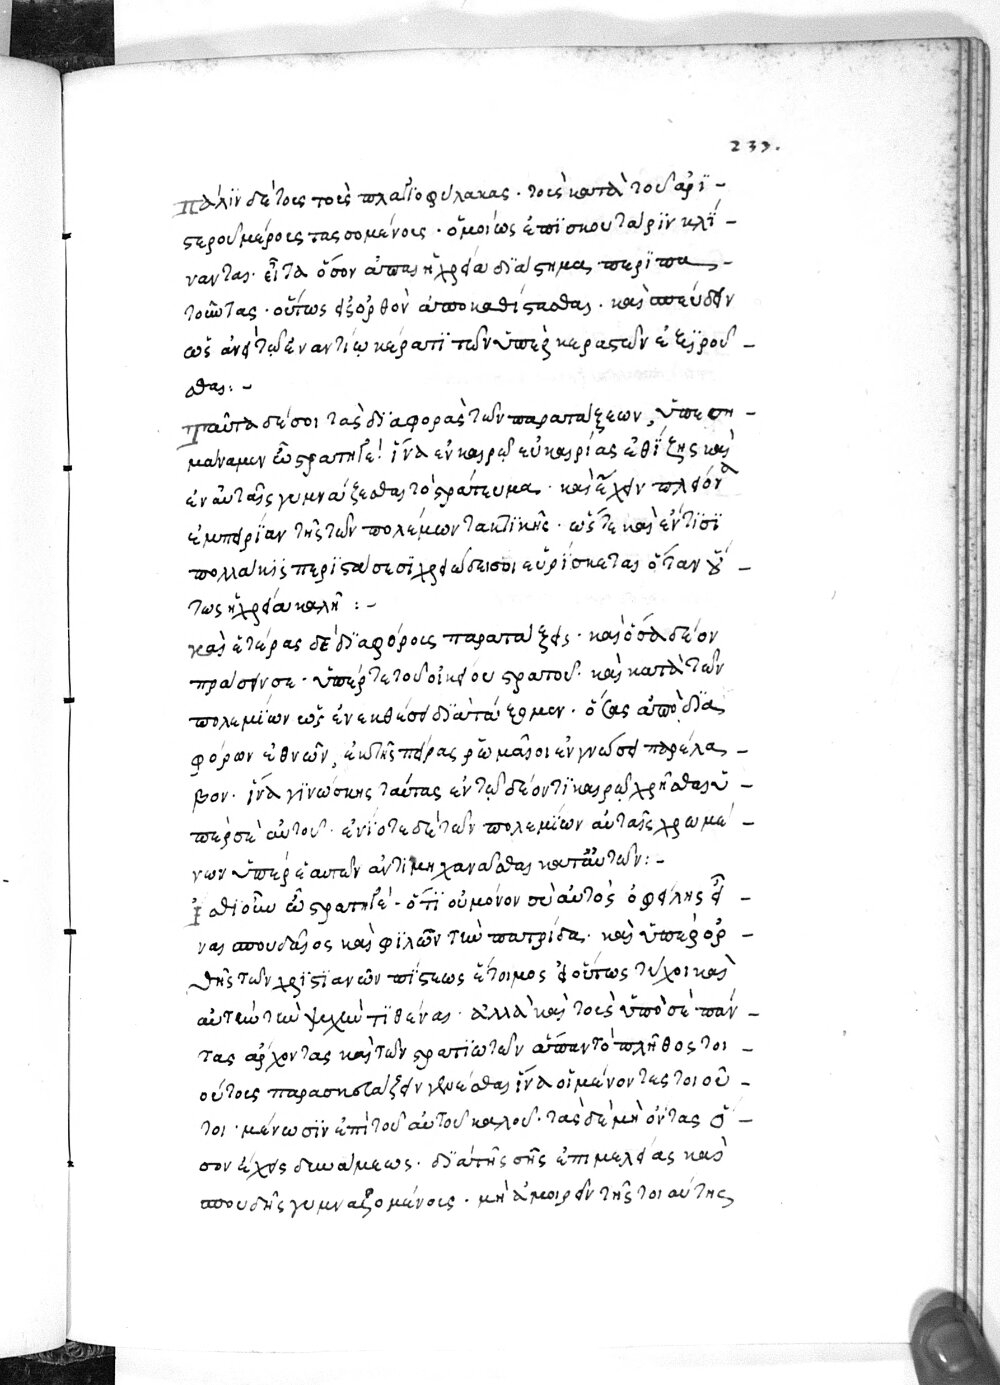 233.
πάλϊν δὲ τοὺς τοὺς πλαγϊοφύλακας · τοὺς κατὰ τοῦ ἀρϊ –
στεροῦ μέρους τασσομένους · ὁμοίως ἐπϊ σκουτάριν κλϊ –
ναντας · εἶτα ὅσον ἀπαϊτῆ χρεία δϊάστημα περϊπα –
τοῦντας · οὕτως ἐξ ὀρθὸν ἀποκαθίστασθαι · καὶ σπεύδειν
ὡς ἂν ἐν τῷ ἐναντίω κέρατϊ τῶν ὑπὲρ κεραστῶν ἐξ εϊροῦ –
σθαι : –
Ταῦτα δέ σοι τὰς δϊαφορὰς τῶν παρατάξεων, ὑπεση –
μάναμεν ὦ στρατηγὲ! ἵνα ἐν καιρῷ εὐκαιρίας ἐθίζης καὶ
ἐν αὐταῖς γυμνάζεσθαι τὸ στράτευμα · καὶ ἔχειν πλείονα
ἐμπειρϊαν τῆς τῶν πολέμων τακτϊκῆς · ὥστε καὶ ἐν τϊσϊ
πολλάκις περϊστάσεσϊ χρειώδεις σοι εὑρίσκεται ὅταν οὕ –
τως ἡ χρεία καλῆ : –
καὶ ἑτέρας δὲ δϊαφόρους παρατάξεις · καὶ ὅσα δέον
πράσσειν σε · ὑπέρ τε τοῦ οἰκείου στρατοῦ · καὶ κατὰ τῶν
πολεμϊων ὡς ἐν ἐκθέσει δϊαταττόμεν · ὅσας ἀπὸ δϊα
φόρων ἐθνῶν, ἐκ τῆς πείρας ῥωμαῖοι ἐν γνώσει παρέλα –
βον · ἵνα γϊνώσκης ταύτας ἐν τῷ δέοντϊ καιρῷ χρῆσθαι ὑ –
πέρ σε αὐτοῦ · ἐνίοτε δὲ τῶν πολεμϊων αὐταῖς χρωμέ –
νων ὑπὲρ ἑαυτῶν ἀντιμηχανᾶσθαι κατ᾽ αὐτῶν : –
Ἴσθι οὖν ὦ στρατηγὲ · ὅτϊ οὐ μόνον σὺ αὐτὸς ὀφείλης εἶ –
ναι σπουδαῖος καὶ φϊλῶν τὴν πατρίδα · καὶ ὑπὲρ ὀρ –
θῆς τῶν χρϊστϊανῶν πίστεως ἕτοιμος εἰ οὕτως τύχοι καὶ
αὐτὴν τὴν ψυχὴν τϊθέναι · ἀλλὰ καὶ τοὺς ὑπὸ σὲ πάν –
τας ἄρχοντας καὶ τῶν στρατϊωτῶν ἅπαν τὸ πλῆθος τοι –
ούτους παρασκευάζειν γενέσθαι ἵνα οἱ μὲν ὄντες τοιοῦ –
τοι · μένωσϊν ἐπὶ τοῦ αὐτοῦ καλοῦ · τὰς δὲ μὴ ὄντας ὅ –
σον ἔχεις δυνάμεως · δϊὰ τῆς σῆς ἐπιμελείας καὶ
σπουδῆς γυμναζομένους · μὴ ἀμοιρεῖν τῆς τοιαύτης